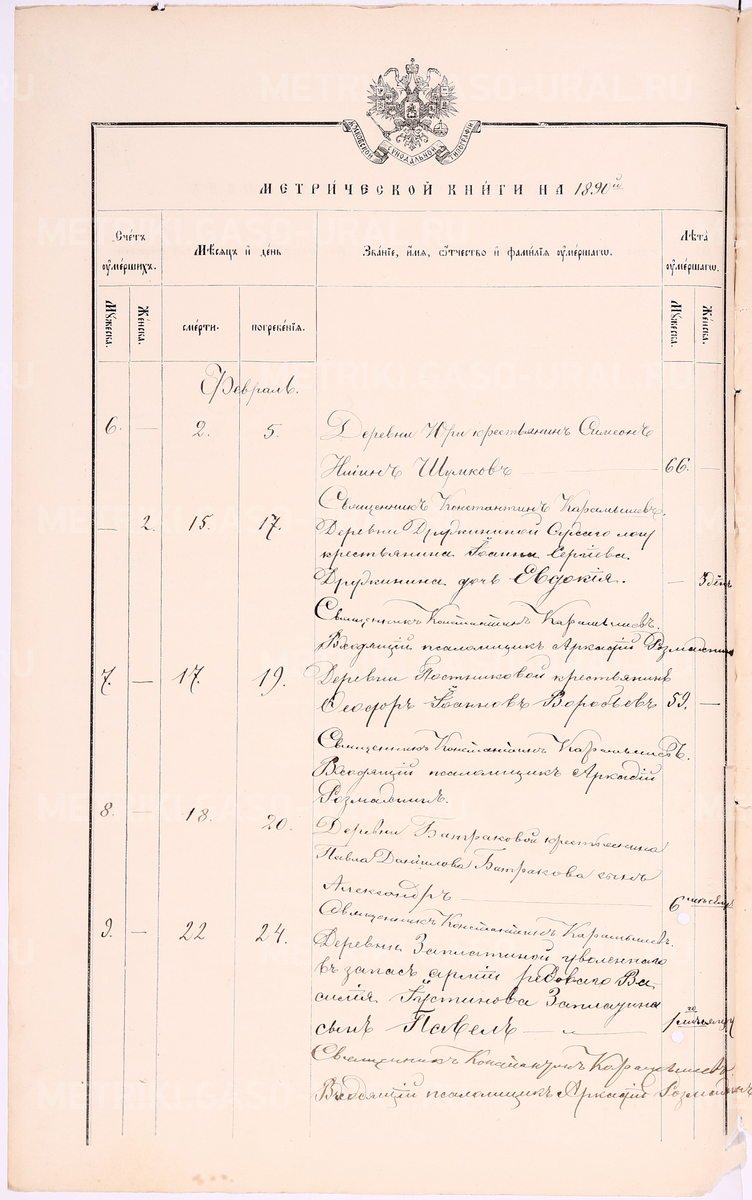 METRIKI.GASO-URAL.RU
МОСКОВСКОЙ СѴНОДАЛЬНОЙ ТИПОГРАФІИ
МЕТРИ́ЧЕСКОЙ КНИ́ГИ НА 1890й
Сче́тъ ѹме́ршихъ.
Мѣ́сяцъ и де́нь
Зва́ніе, и́мя, о́тчество и фами́лія ѹме́ршагѡ.
Лѣта̀ ѹме́ршагѡ.
Мꙋ́жеска. Же́нска. сме́рти. погребе́нія. Мꙋ́жеска. Же́нска.
Февраль.
6. — 2. 5. Деревни Юри крестьянинъ Симеонъ
Шумковъ — 66. —
Священникъ Константинъ Карамышевъ.
— 2. 15. 17. Деревни Дружининой логу
крестьянина Іоанна Сергіева
Дружинина дочь Евдокія. — 3 день
Священникъ Константинъ Карамышевъ.
Входящій псаломщикъ Аркадій
7. — 17. 19. Деревни Постниковой крестьянинъ
Ѳеодоръ Іоанновъ Воробьевъ 59. —
Священникъ Константинъ Карамышевъ.
Входящій псаломщикъ Аркадій
8. — 18. 20. Деревни Битраковой крестьянина
Павла Данилова Битракова сынъ
Александръ — 6 мѣсяц.
Священникъ Константинъ Карамышевъ.
9. — 22 24. Деревни Заплатиной уволеннаго
въ запасъ арміи рядоваго Ва-
силія Іустинова Заплатина
сынъ Павелъ — „ — 1
Священникъ Константинъ Карамышевъ
Входящій псаломщикъ Аркадій